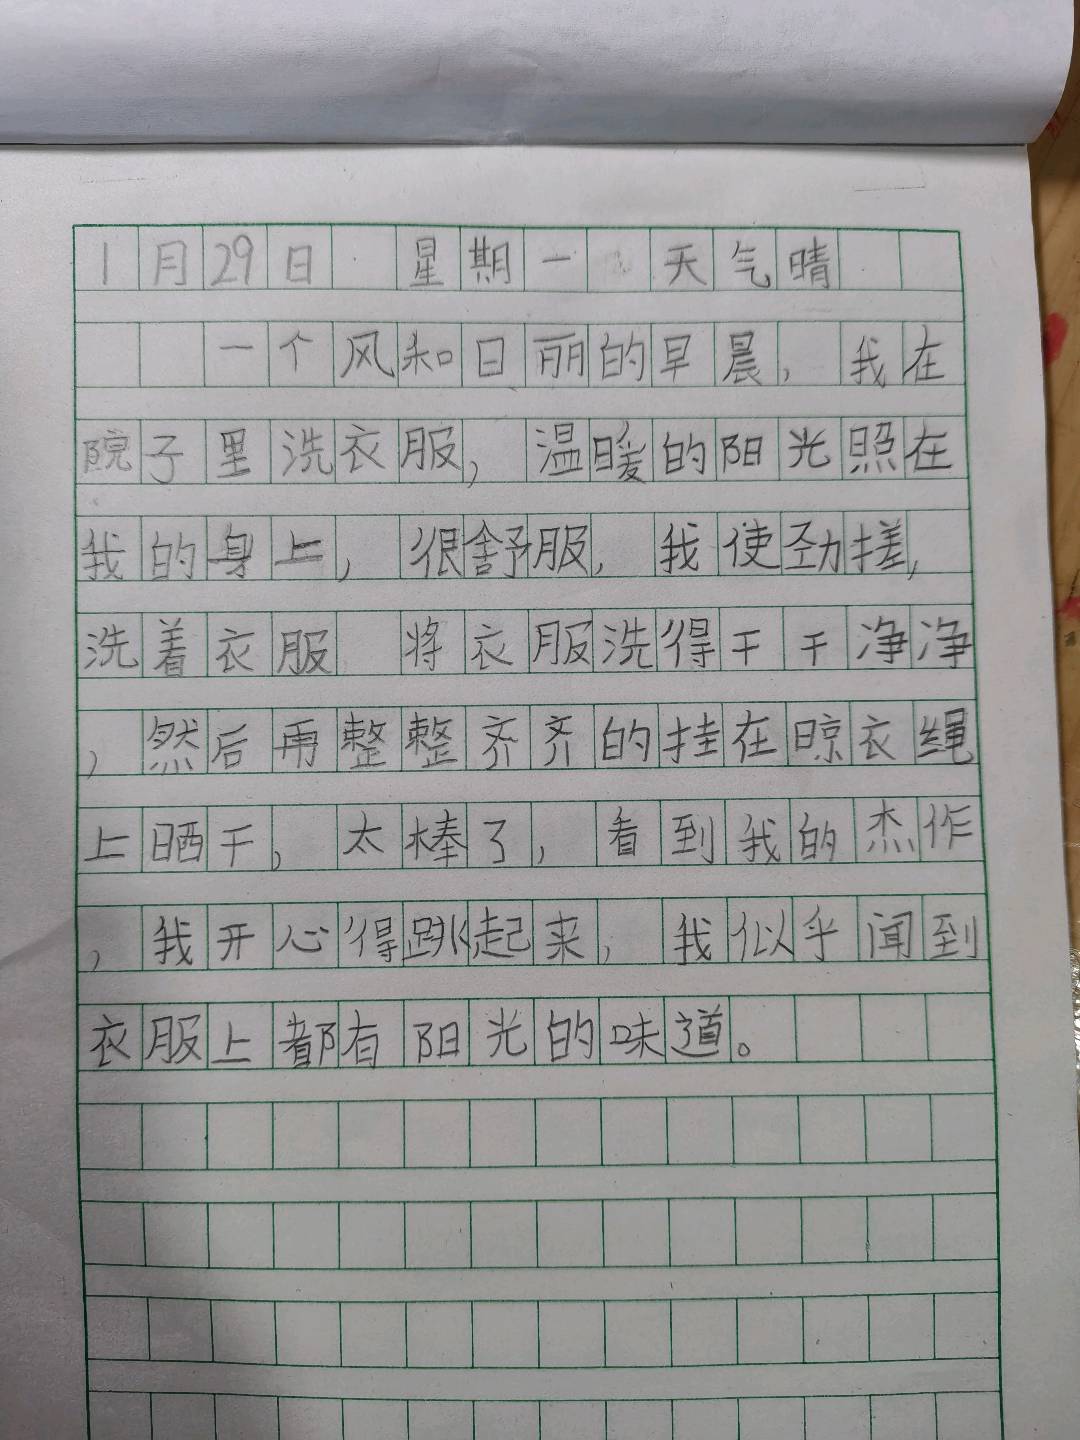 1月29日 星期一 天气晴
一个风知日丽的早晨，我在
院子里洗衣服，温暖的阳光照在
我的身上，很舒服，我使劲搓，
洗着衣服 将衣服洗得干干净净
，然后再整整齐齐的挂在晾衣绳
上晒干，太棒了，看到我的杰作
，我开心得跳起来，我似乎闻到
衣服上都有阳光的味道。